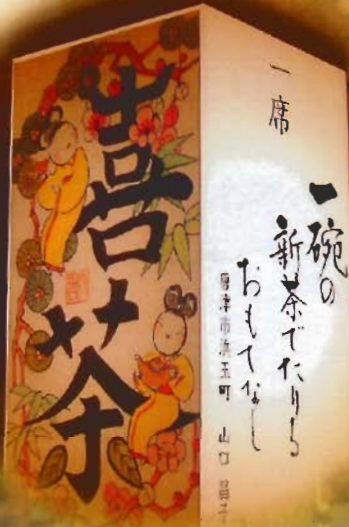 喜茶
一席
一碗の
新茶でたりる
おもてなし
唐津市浜玉町 山口